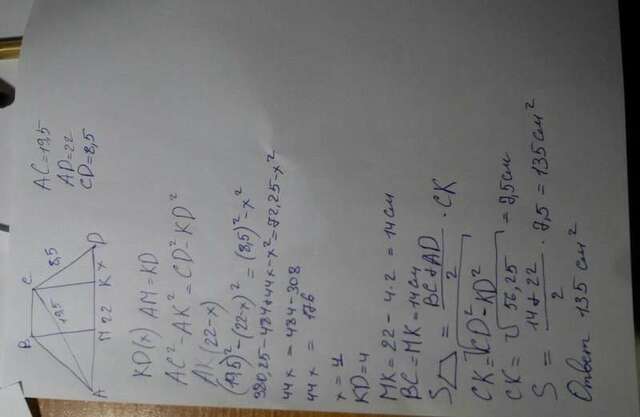 B C
19,5 8,5
A M 22 K x D
AC=19,5
AD=22
CD=8,5
KD(x) AM=KD
AC²-AK²=CD²-KD²
(22-x)
(19,5)²-(22-x)²=(8,5)²-x²
380,25-484+44x-x²=72,25-x²
44x=484-308
44x= 176
x=4
KD=4
MK=22-4·2=14см
BC=MK=14см
S = BC+AD / 2 · CK
CK=√CD²-KD²
CK=√56,25 =7,5см
S= 14+22 / 2 · 7,5=135см²
Ответ 135см²